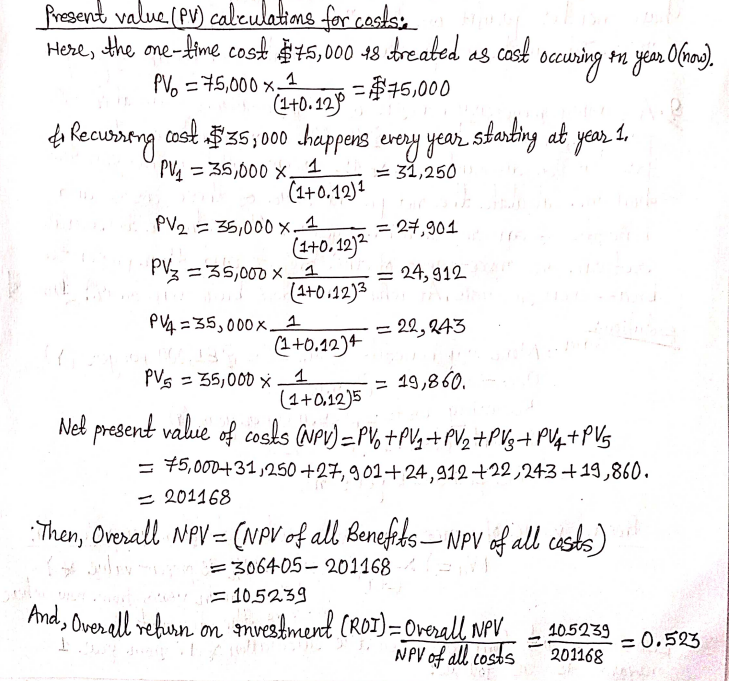 Present value (PV) calculations for costs:
Here, the one-time cost $75,000 is treated as cost occuring in year 0 (now).
PV₀ = 75,000 × 1/(1+0.12)⁰ = $75,000
& Recurring cost $35,000 happens every year starting at year 1.
PV₁ = 35,000 × 1/(1+0.12)¹ = 31,250
PV₂ = 35,000 × 1/(1+0.12)² = 27,901
PV₃ = 35,000 × 1/(1+0.12)³ = 24,912
PV₄ = 35,000 × 1/(1+0.12)⁴ = 22,243
PV₅ = 35,000 × 1/(1+0.12)⁵ = 19,860.
Net present value of costs (NPV) = PV₀ + PV₁ + PV₂ + PV₃ + PV₄ + PV₅
= 75,000+31,250+27,901+24,912+22,243+19,860.
= 201168
Then, Overall NPV = (NPV of all Benefits – NPV of all costs)
= 306405 – 201168
= 105239
And, Overall return on investment (ROI) = Overall NPV/NPV of all costs = 105239/201168 = 0.523